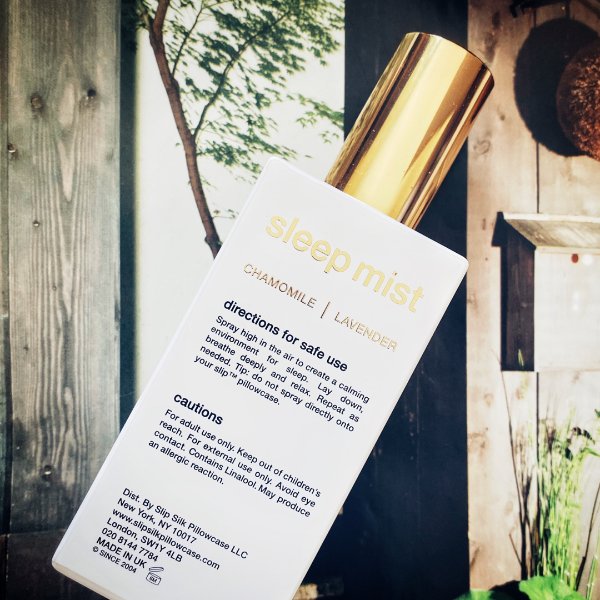 sleep mist
CHAMOMILE | LAVENDER
directions for safe use
Spray high in the air to create a calming
environment for sleep. Lay down,
breathe deeply and relax. Repeat as
needed. Tip: do not spray directly onto
your slip™ pillowcase.
cautions
For adult use only. Keep out of children's
reach. For external use only. Avoid eye
contact. Contains Linalool. May produce
an allergic reaction.
Dist. By Slip Silk Pillowcase LLC
New York, NY 10017
www.slipsilkpillowcase.com
London, SW1Y 4LB
020 8144 7784
MADE IN UK
© SINCE 2004